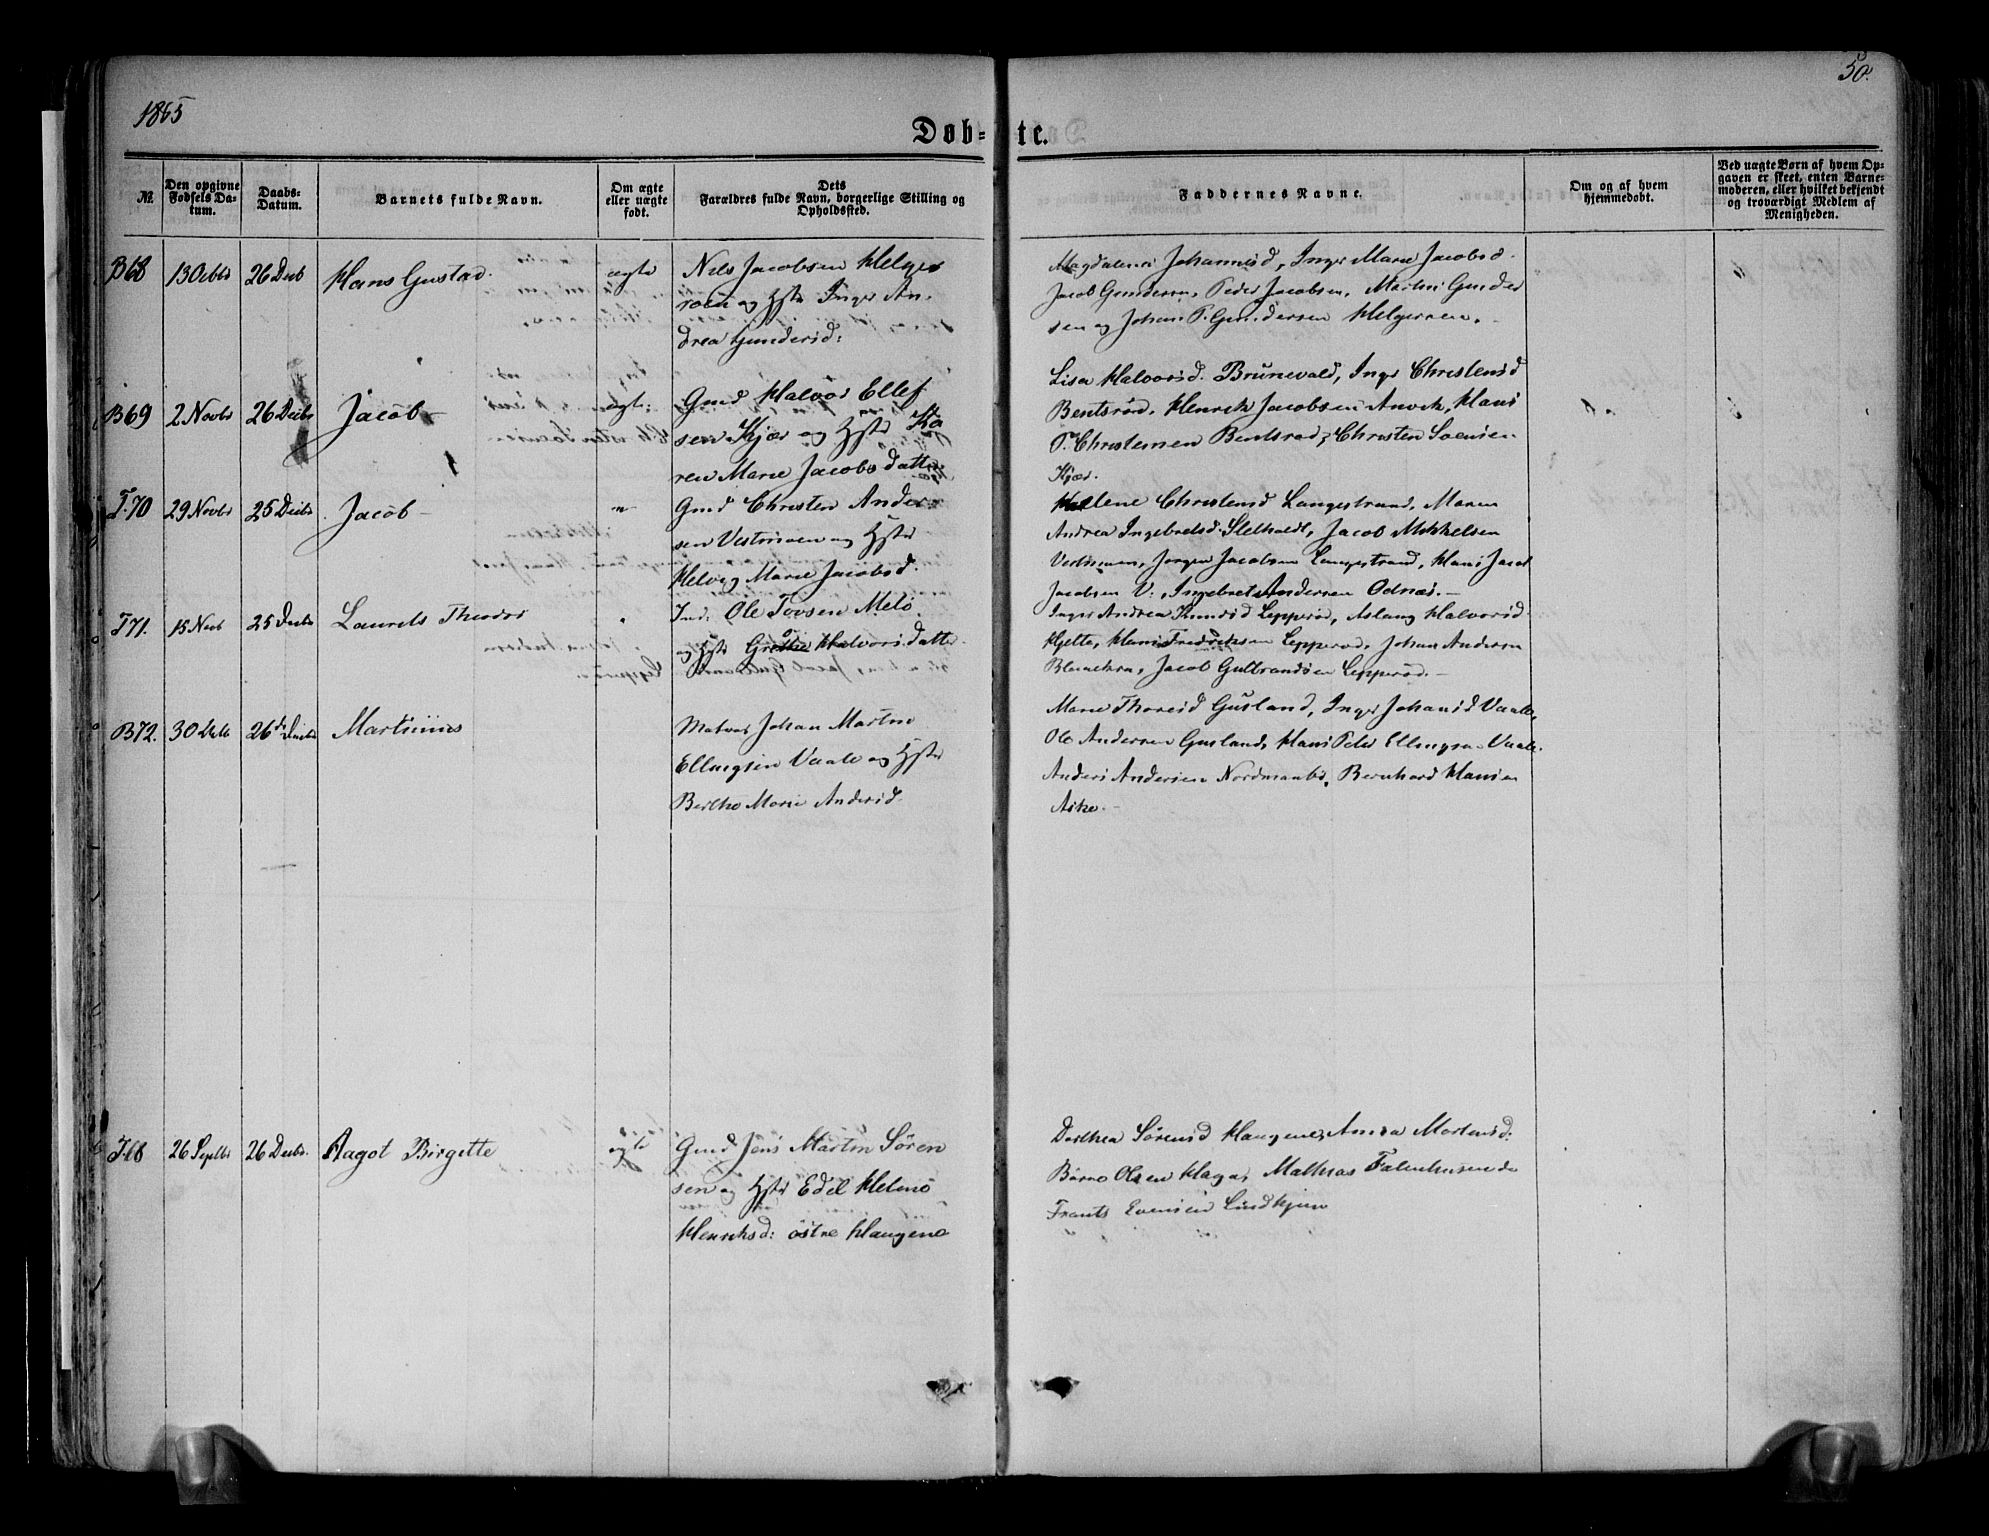 1865
50.
Døb-te.
№.
Den opgivne Fødsels Da-
tum.
Daabs-
Datum.
Barnets fulde Navn.
Om ægte
eller uægte
født.
Dets
Forældres fulde Navn, borgerlige Stilling og
Opholdssted.
Faddernes Navne.
Om og af hvem
hjemmedøbt.
Ved uægte Børn af hvem Op-
gaven er skeet, enten Barne-
moderen, eller hvilket bekjendt
og troværdigt Medlem af
Menigheden.
B68 13 Octbr 26 Decb Hans Gustav ægte Nils Jacobsen Helge
roen og Hstr Inger An-
drea Gundersd:
Magdalene Johannesd, Inger Marie Jacobsd.
Jacob Gundersen, Peder Jacobsen, Martin Gunder
sen og Johan P. Gundersen Helgeroen.
B69 2 Novbr 26 Decbr Jacob ægt. Gmd Halvor Ellef
sen Kjær og Hstr Ka
ren Marie Jacobsdatter
Lisa Halvorsd. Brunevald, Inger Christensd
Bentsrød, Henrik Jacobsen Anvik, Hans
P. Christensen Bentsrød, Christen Svensen
Kjær.
T.70 29 Novbr 25 Decbr Jacob - " - Gmd Christen Ander
sen Vestmoen og Hstr
Helvig Marie Jacobsd.
Helene Christensd Langestrand, Maren
Andrea Ingebretsd. Stelholdt, Jacob Mikkelsen
Vestmoen, Jørgen Jacobsen Langestrand, Hans Jacob
Jacobsen V:, Ingebret Andersen Odnæs. -
T71. 15 Novb 25 Decbr Laurits Theodor " Ind: Ole Tovsen Melø
og Hstr Grethe Halvorsdatter
Inger Andrea Knudsd Lepperød, Aslaug Halvorsd.
Hjelte, Hans Fredriksen Lepperød, Johan Andersen
Jacob Gulbrandsen Lepperød. -
B72. 30 26de Decbr Martinius Matros Johan Martin
Ellingsen Vaale og Hstr
Berthe Marie Andersd.
Maren Thoresd Gusland, Inger Johansd Vaale,
Ole Andersen Gusland, Hans Peder Ellingsen Vaale
Anders Andersen Nordmandbø, Bernhard Hansen
Aske. -
T68 26 Septbr 26 Decbr. Aagot Birgitte ægte Gmd Jens Martin Søren
sen og Hstr Edel Helene
Henriksd: østre Haugene
Dorthea Sørensd Haugene, Anna Martensd:
Børre Olsen Haga, Mathias Falenhusen do
Frants Evensen Lindhjem